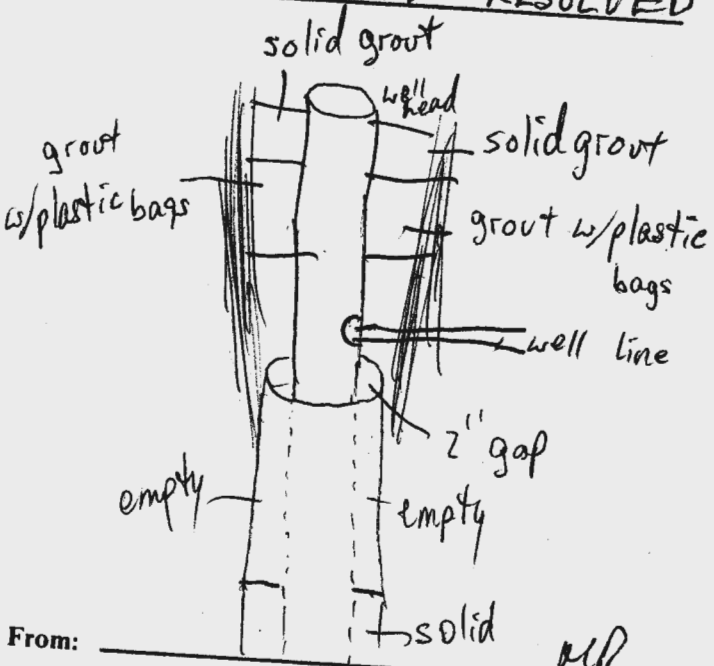 RESOLVED
solid grout
well
head
grout
w/plastic bags
solid grout
grout w/plastic
bags
well line
2" gap
empty
empty
solid
From: